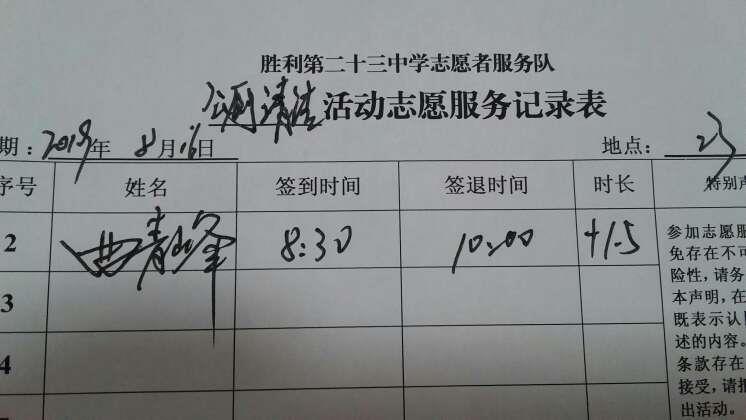 胜利第二十三中学志愿者服务队
清洁活动志愿服务记录表
期：2019年 8月16日 地点： 23
序号 姓名 签到时间 签退时间 时长 特别声
2 曲青峰 8:30 10:00 +1.5
3
4
参加志愿服
免存在不可
险性，请务
本声明，在
既表示认同
述的内容。
条款存在
接受，请拒
出活动。